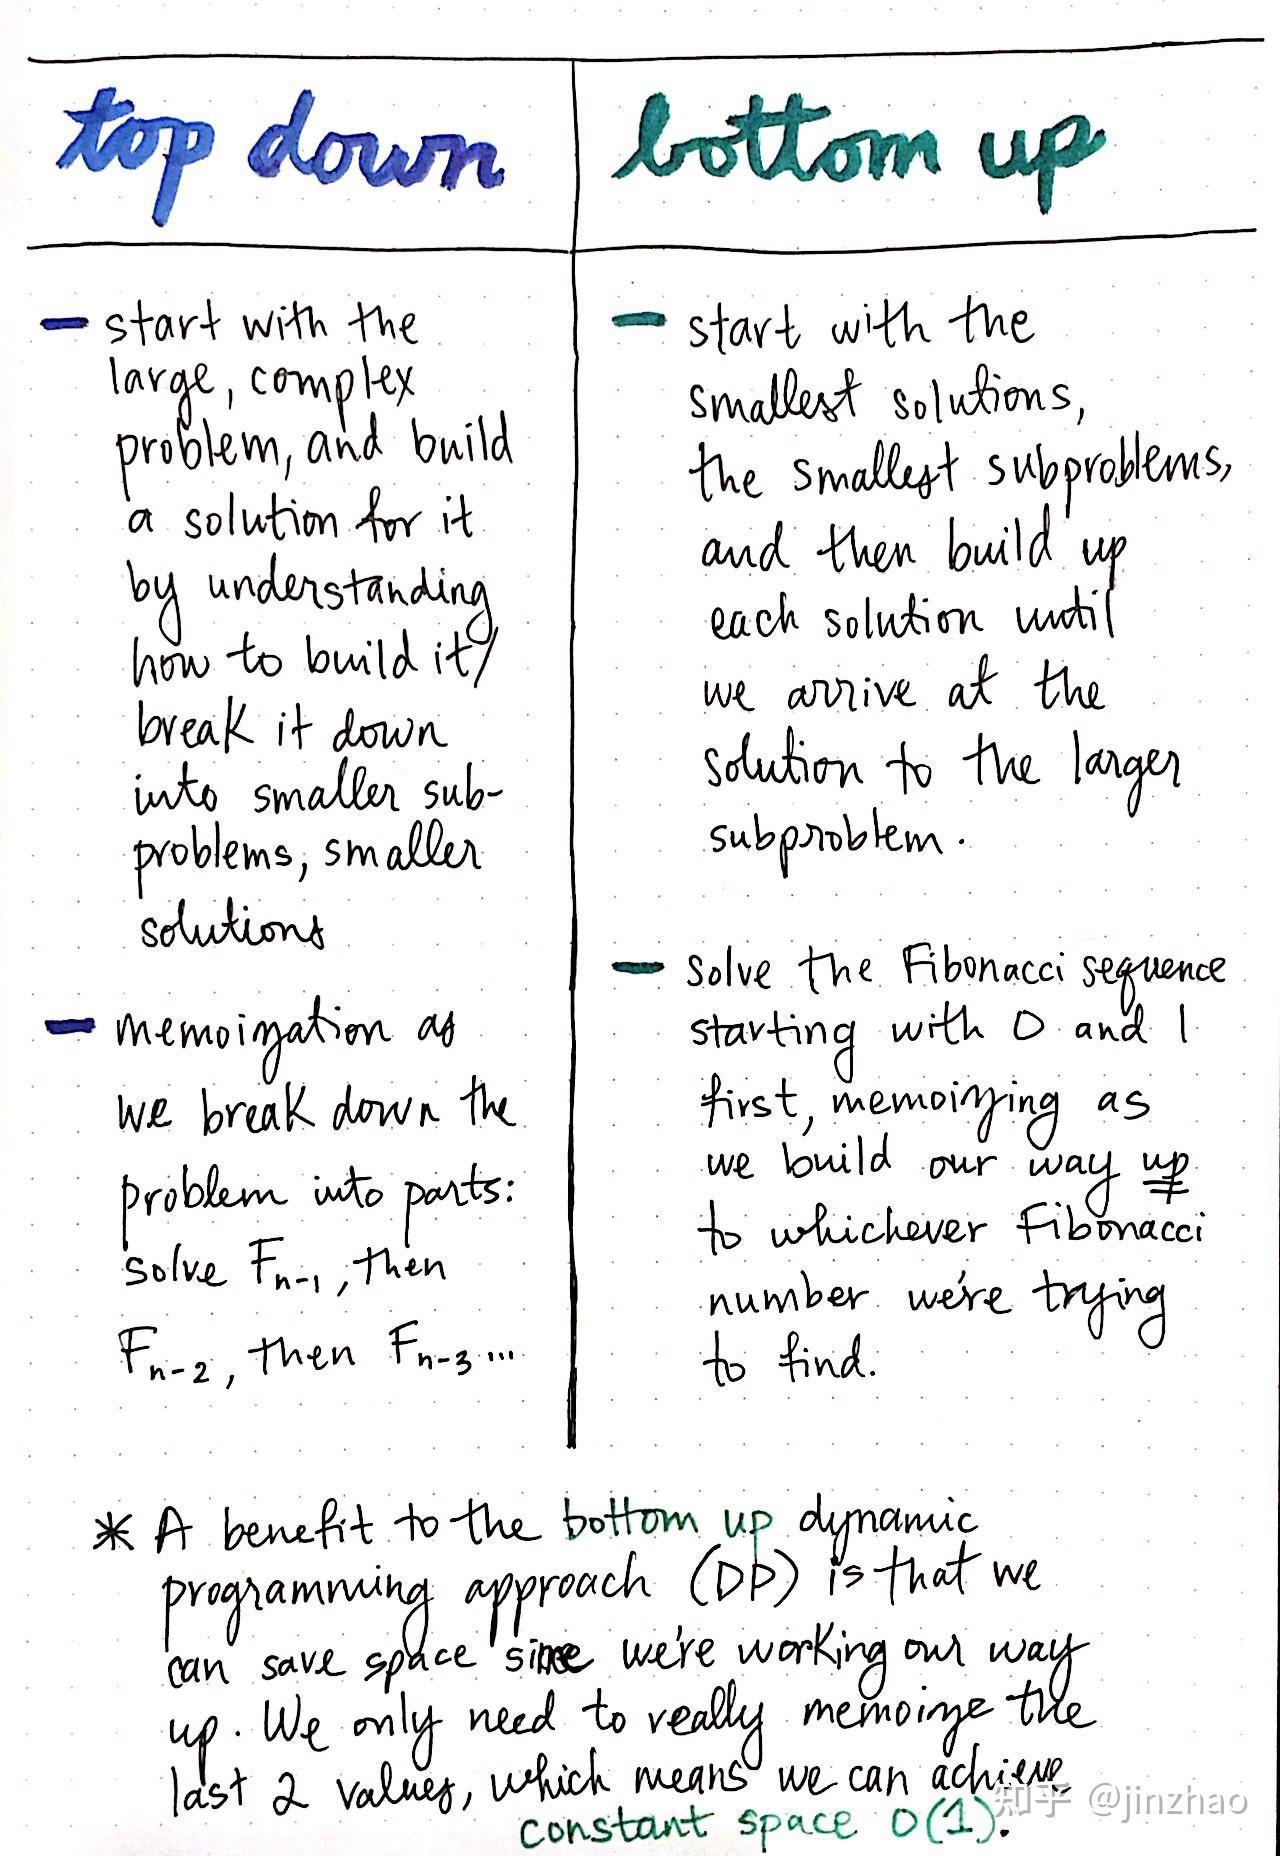 top down
- start with the
large, complex
problem, and build
a solution for it
by understanding
how to build it/
break it down
into smaller sub-
problems, smaller
solutions
- memoization as
we break down the
problem into parts:
solve Fn-1, then
Fn-2, then Fn-3...
bottom up
- start with the
smallest solutions,
the smallest subproblems,
and then build up
each solution until
we arrive at the
solution to the larger
subproblem.
- solve the Fibonacci sequence
starting with 0 and 1
first, memoizing as
we build our way up
to whichever Fibonacci
number we're trying
to find.
* A benefit to the bottom up dynamic
programming approach (DP) is that we
can save space since we're working our way
up. We only need to really memoize the
last 2 values, which means we can achieve
constant space O(1).
知乎 @jinzhao